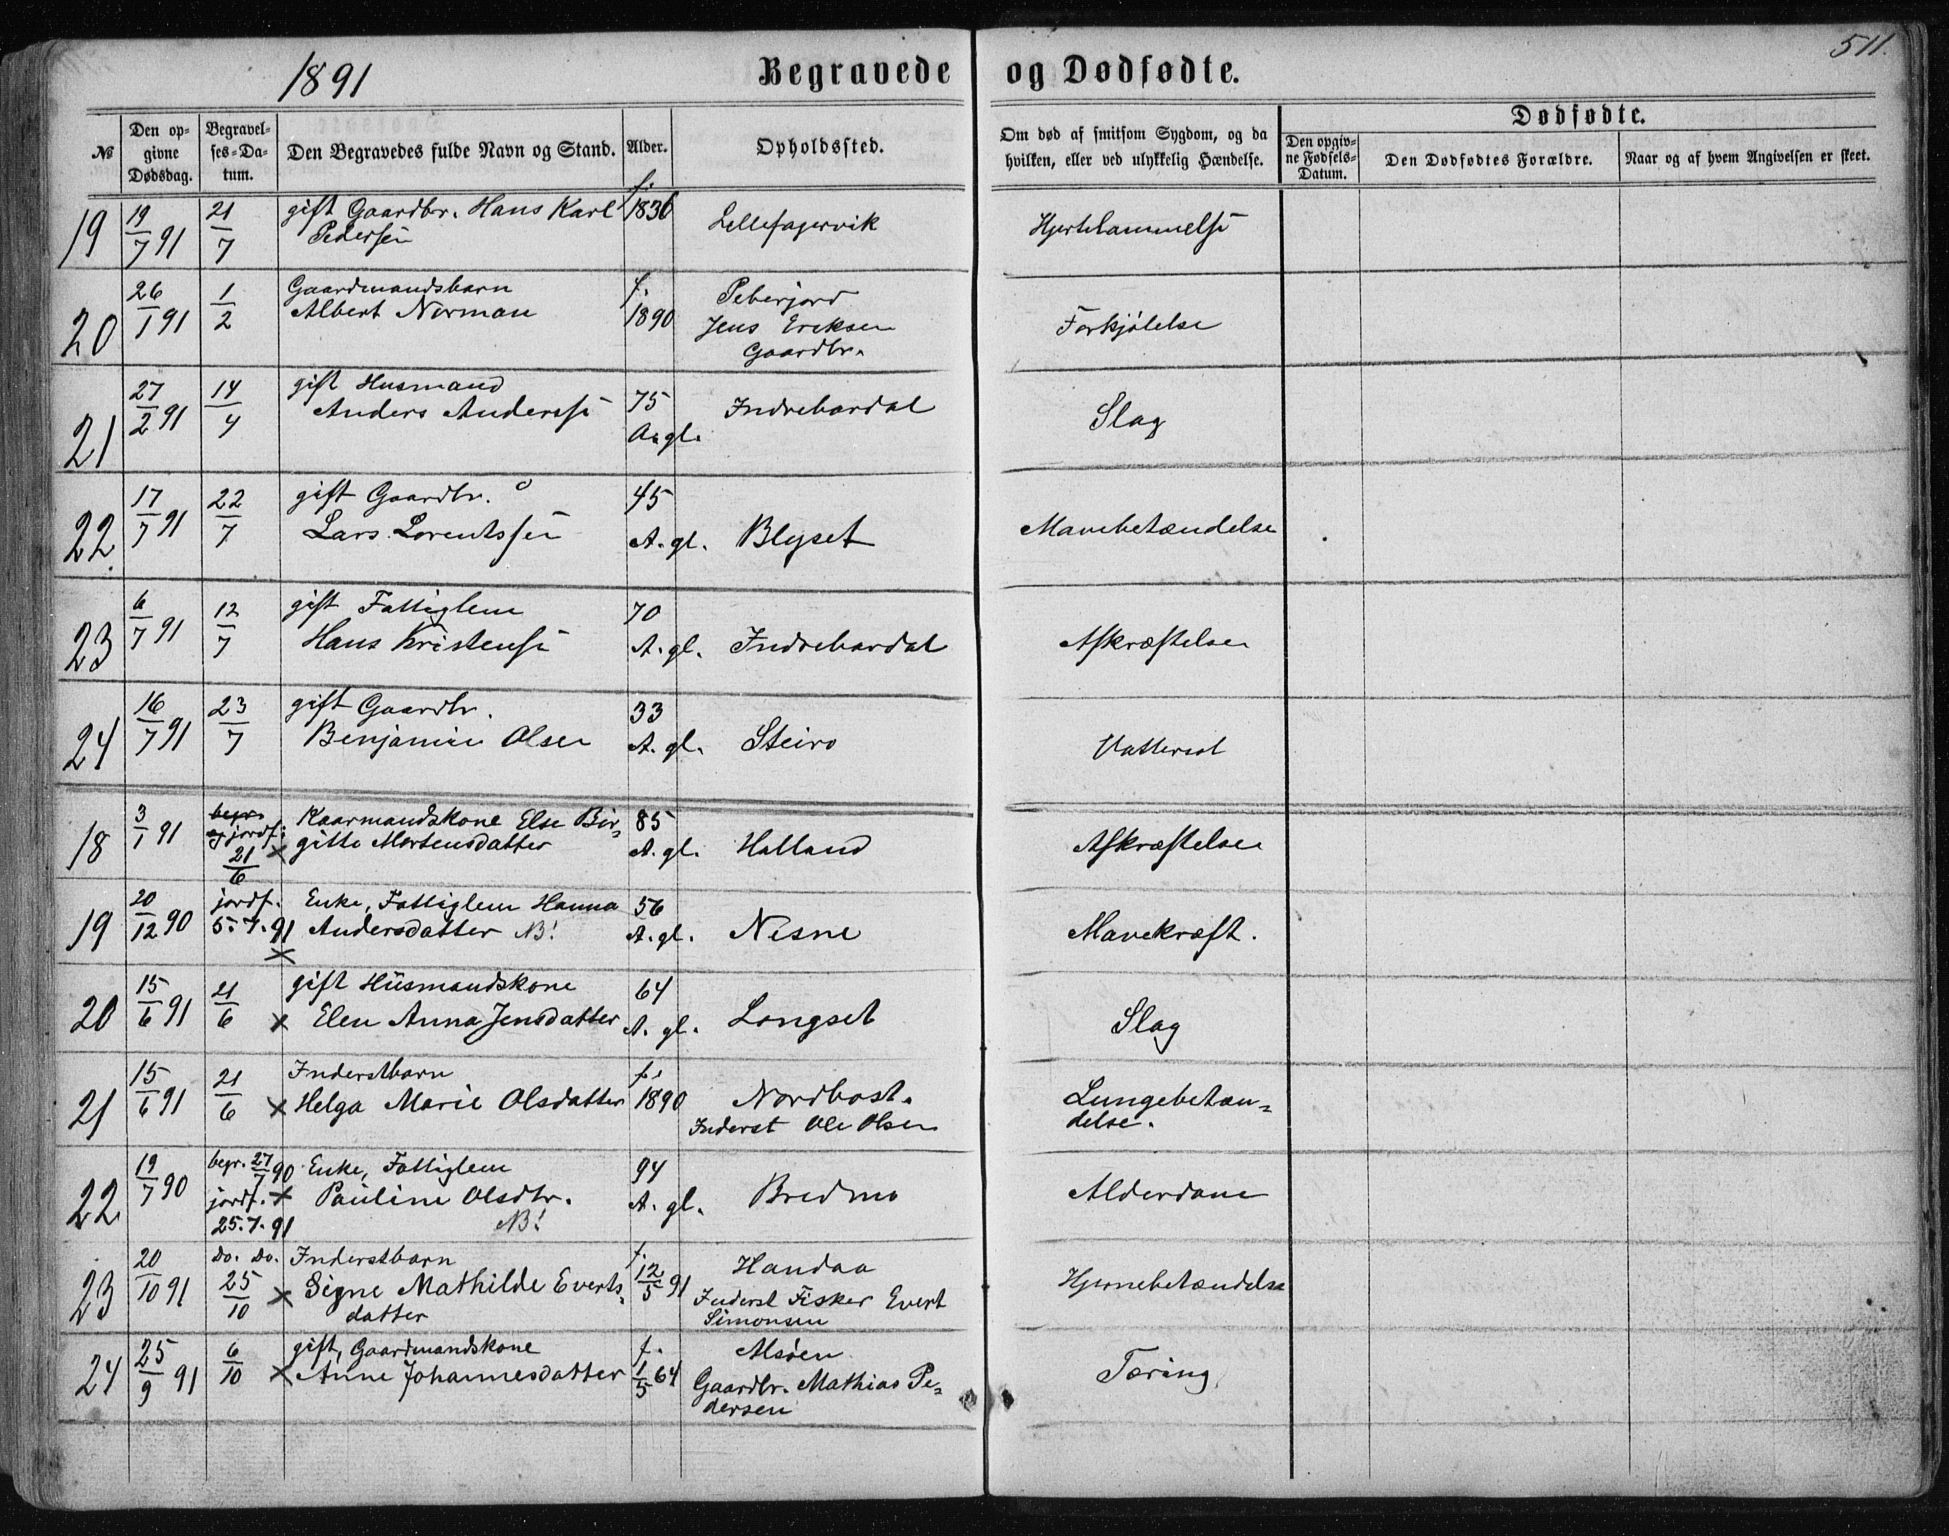 1891 Begravede og Dødfødte. 511.
№ Den opgivne Dødsdag. Begravelses-Datum. Den Begravedes fulde Navn og Stand. Alder. Opholdssted. Om død af smitsom Sygdom, og da hvilken, eller ved ulykkelig Hændelse. Dødfødte. Den opgivne Fødsels-Datum. Den Dødfødtes Forældre. Naar og af hvem Angivelsen er skeet.
19 19/7 91 21/7 gift Gaardbr. Hans Karl f. 1836 Lillefagervik Hjertelammelse
Pedersen
20 26/1 91 1/2 Gaardmandsbarn f. Peberjord
Albert Norman 1890 Jens Eriksen Forkjølelse
Gaardbr.
21 27/2 91 14/4 gift Husmand 75
Anders Anderssen A. gl. Indrebardal Slag
22 17/7 91 22/7 gift Gaardbr. 45
Lars Lorentssen A. gl. Blyset Mavebetændelse
23 6/7 91 12/7 gift Fattiglem 70
Hans Kristensen A. gl. Indrebardal Afkræftelse
24 16/7 91 23/7 gift Gaardbr. 33
Benjamin Olsen A. gl. Steiro Vattersot
18 3/1 91 begr. og jordf. 21/6 × Kaarmandskone Else Bir- 85
gitte Mortensdatter A. gl. Halland Afkræftelse
19 20/12 90 jordf. 5.7.91 × Enke, Fattiglem Hanna 56
Andersdatter NB! A. gl. Nesne Mavekræft.
20 15/6 91 21/6 × gift Husmandskone 64
Elen Anna Jensdatter A. gl. Langset Slag
21 15/6 91 21/6 × Inderstbarn f.
Helga Marie Olsdatter 1890 Nordbost. Lungebetæn-
Inderst Ole Olsen delse.
22 19/7 90 begr. 27/7 90 Enke, Fattiglem 94
jordf. × Pauline Olsdtr. A. gl. Bredmo Alderdom
25.7.91 NB!
23 20/10 91 Do. Do. 25/10 × Inderstbarn f. 12/5 91 Handaa
Signe Mathilde Everts- Inderst Fisker Evert Hjernebetændelse
datter Simonsen
24 25/9 91 6/10 × gift, Gaardmandskone f. 1/5 64 Alsøen
Anne Johannesdatter Gaardbr. Mathias Pe- Tæring
dersen